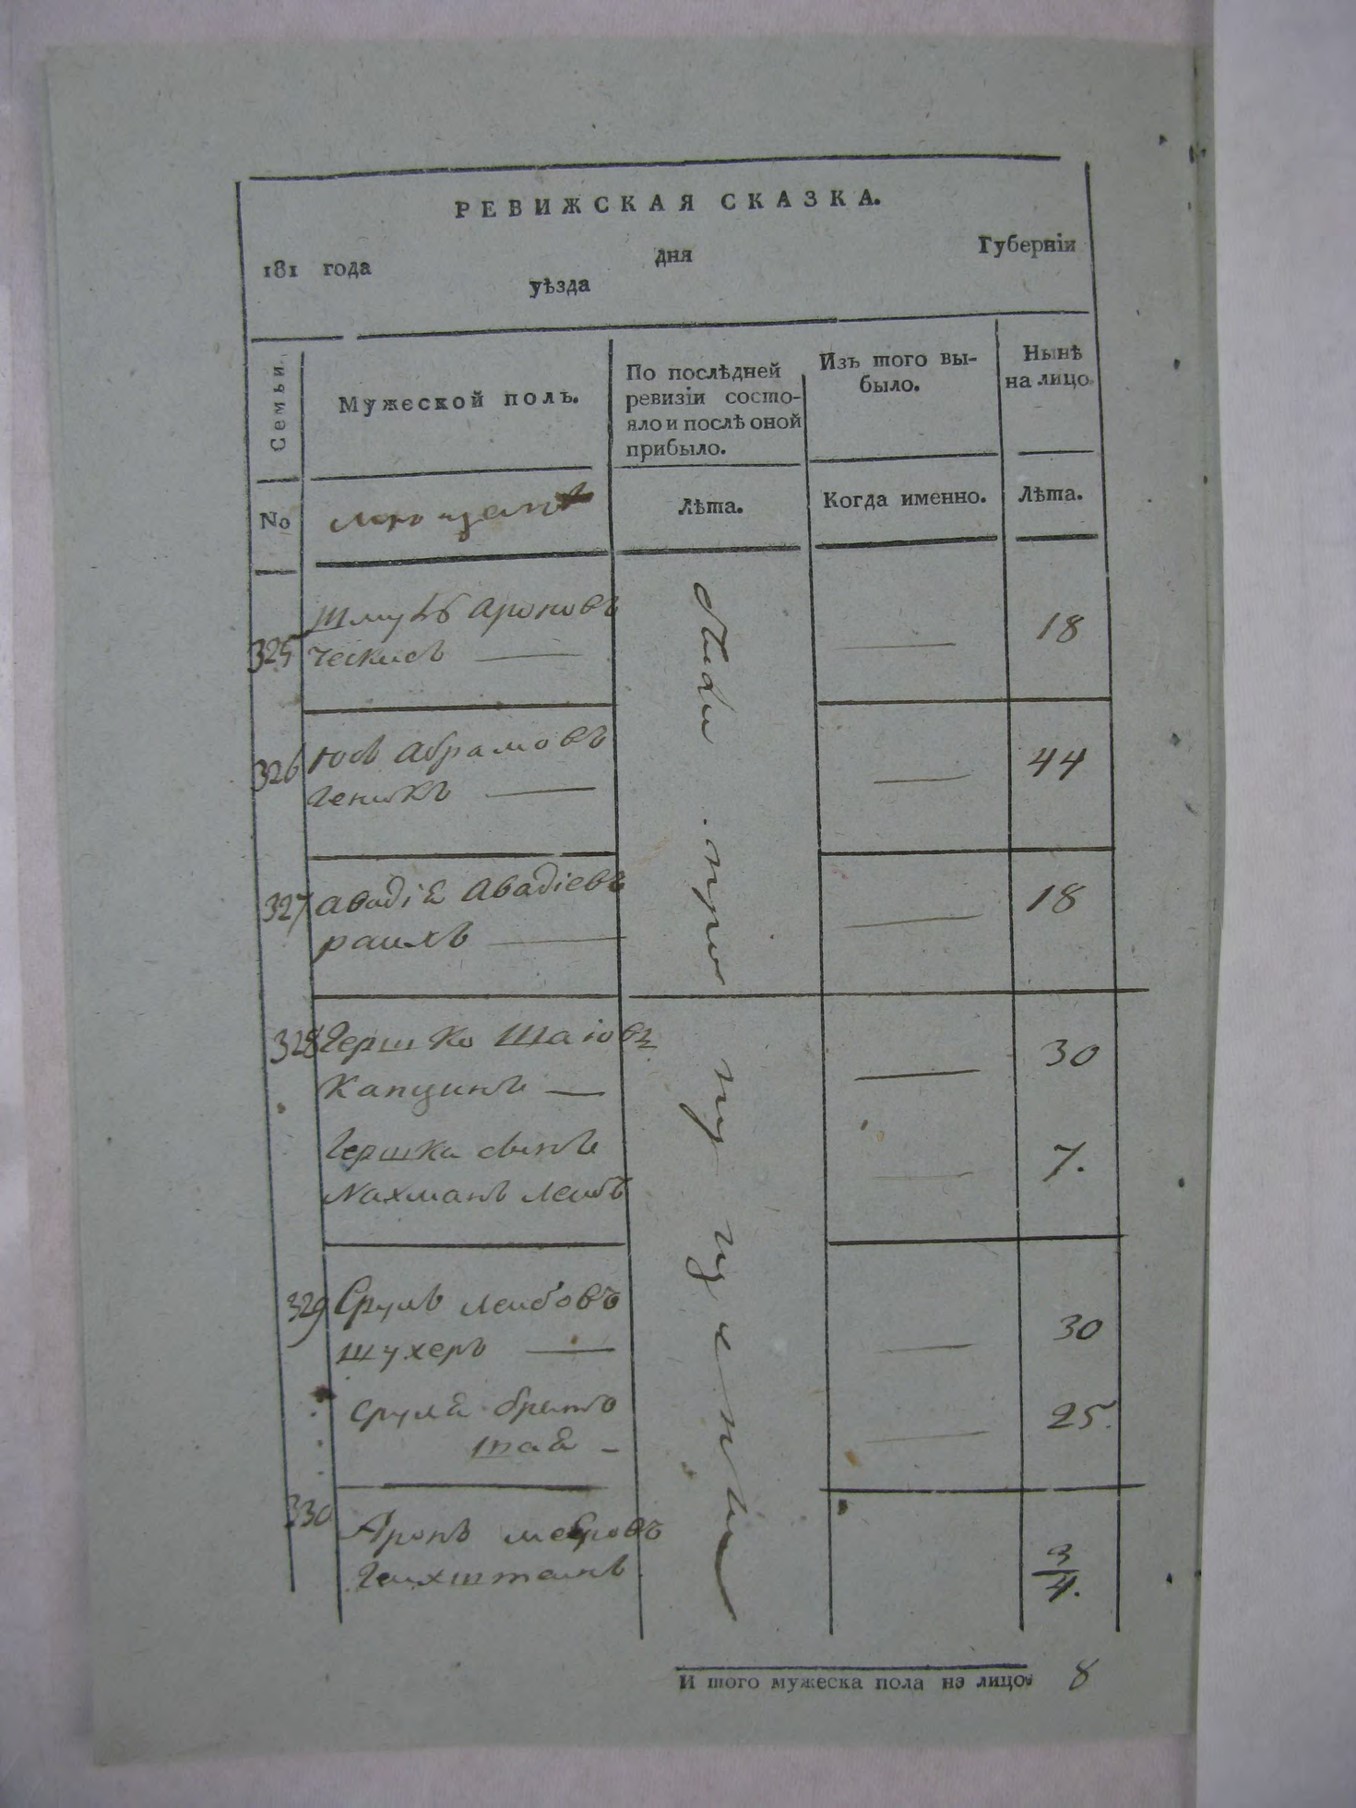 РЕВИЖСКАЯ СКАЗКА.
181 года дня Губерніи
уѣзда
Семьи.
Мужеской полъ.
По послѣдней ревизіи состо-
яло и послѣ оной
прибыло.
Изъ того вы-
было.
Нынѣ
на лицо.
No
Лѣта.
Когда именно.
Лѣта.
325 Шмуль Ароновъ 18
326 Іось Абрамовъ 44
Геникъ
327 Авадіа Авадіевъ 18
раихъ
328 Гершко Шаіовъ 30
Капцинъ
Гершка сынъ 7.
Нахманъ Леибъ
329 Сруль Леибовъ 30
шухеръ
Сруля братъ 25.
330 Аронъ
Геихштеинъ 3/4.
И того мужеска пола на лицо 8